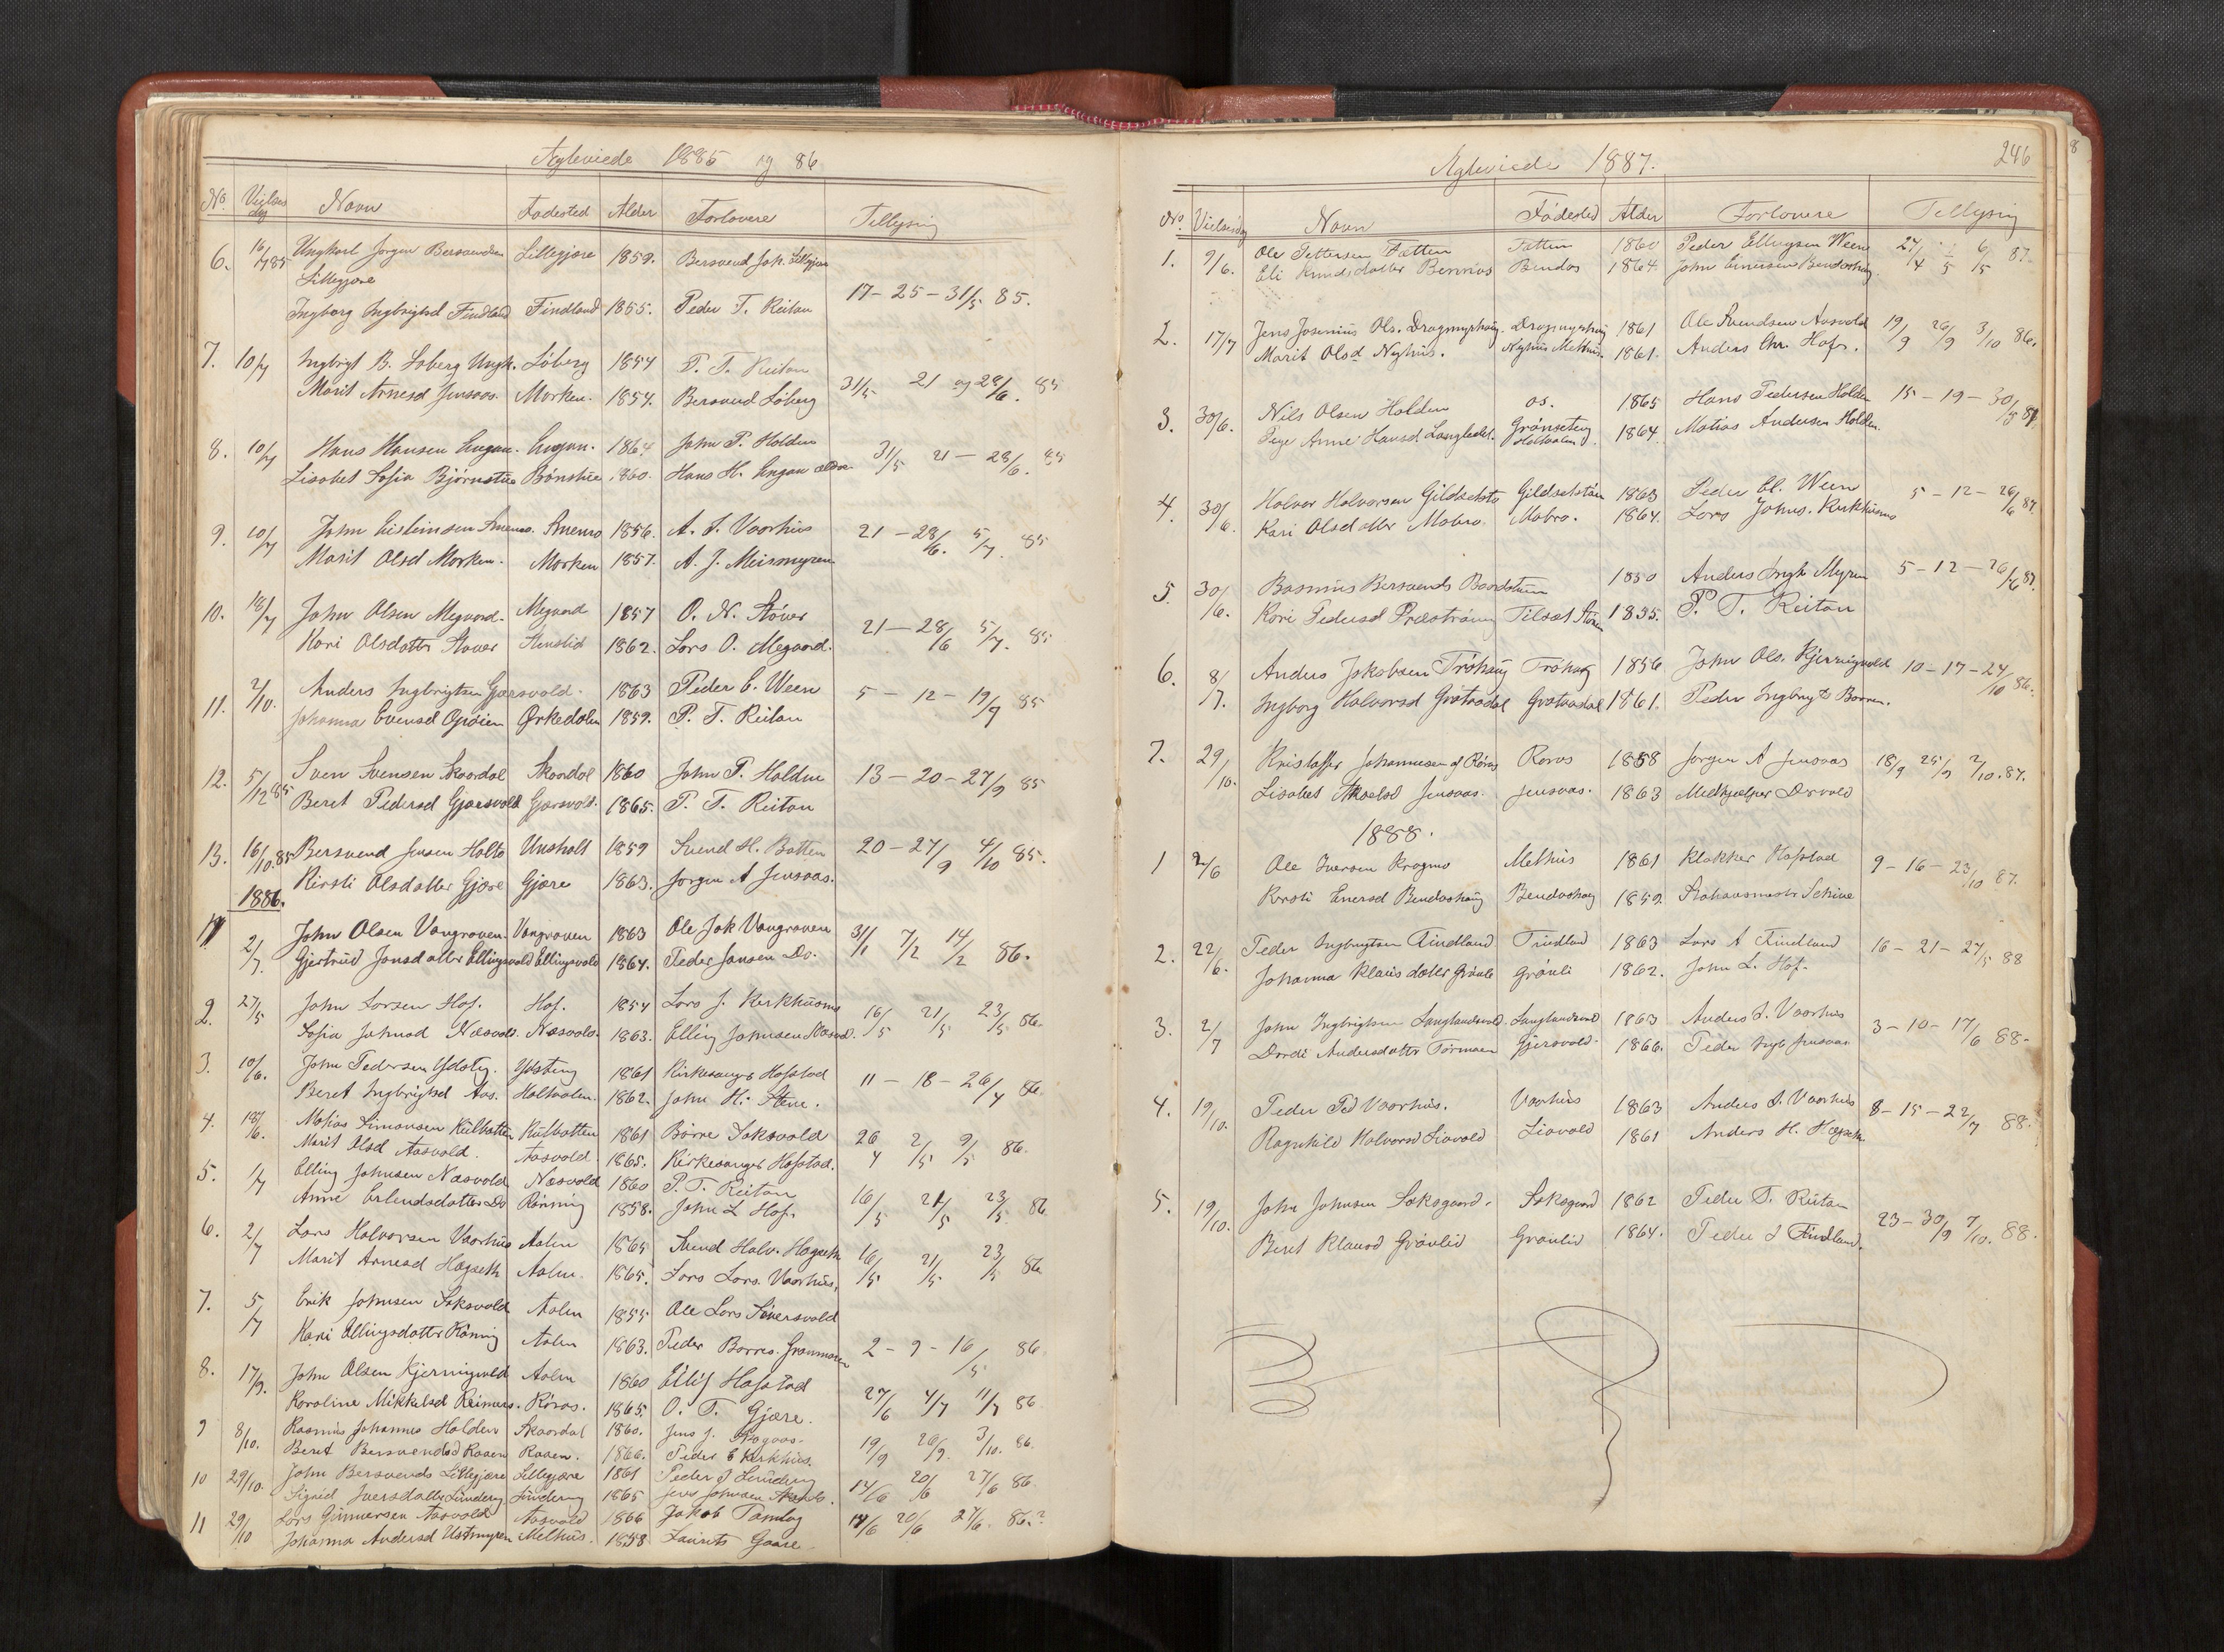 Ægteviede 1885 og 86
No Vielses dag Navn Fødested Alder Forlovere Tillysing
6. 16/7 85 Ungkarl Jørgen Bersvendsen Lillegjøre Lillegjære 1859. Bersvend Joh. Lillegjøre
Ingborg Ingbrigtsd Findland Findland 1855. Peder T. Reitan 17 - 25 - 31/5 85.
7. 10/7 Ingbrigt B. Løberg Ungk. Løberg 1854 P. T. Reitan
Marit Arnesd Jensaas. Morken. 1854. Bersvend Løberg 31/5 21 og 28/6. 85
8. 10/7 Hans Hansen Engan. Engan. 1864 John P. Holden
Lisabet Sofia Bjørnstu 1860. Hans H. Engan 31/5 21 - 28/6. 85
9. 10/7 John Eisteinsen 1856. A. S. Vaarhus
Marit Olsd Morken. Morken 1857. A. J. 21 - 28/6. 5/7. 85
10. 18/7 John Olsen Megaard. Megaard 1857 O. N. Støver
Kari Olsdatter Støver Stenslid 1862. Lars O. Megaard. 21 - 28/6 5/7. 85
11. 2/10. Anders Ingbrigtsen Gjærsvold. 1863 Peder E. Ween
Johanna Evensd Opøien Ørkedalen 1859. P. T. Reitan 5 - 12 - 19/9 85
12. 5/12 85 Sven Svensen Skaardal Skaardal 1860 John P. Holden
Beret Pedersd Gjærsvold Gjærsvold. 1865. P. T. Reitan 13 - 20 - 27/9 85
13. 16/10. 85 Bersvend Jensen Holte Unsholt 1859 Svend H. Botten
Kirsti Olsdatter Gjære Gjære 1863. Jørgen A Jensaas. 20 - 27/9 4/10 85.
1886.
1 2/7. John Olsen Vongraven. Vongraven 1863 Ole Joh Vongraven
Gjertrud Jonsdatter Ellingsvold Ellingsvold 1864. Peder Jansen Do. 31/1 7/2 14/2 86.
2. 27/5 John Larsen Hof. Hof. 1854 Lars J. Kirkhusmo
Sofia Johnsd Næsvold. Næsvold. 1863. Elling Johnsen Næsvd. 16/5 21/5 23/5 86.
3. 10/6. John Pedersen Ydsteg. Ydsteng 1861 Kirkesanger Hofstad
Beret Ingbrigtsd Aas. Holtaalen. 1862. John H. Stene. 11 - 18 - 26/4 86.
4. 18/6. Matias Simonsen Kulbotten Kulbotten 1861 Børre Saksvold
Marit Olsd Aasvold. Aasvold. 1865. Kirkesanger Hofstad. 26/4 2/5 9/5 86.
5. 1/7 Elling Johnsen Næsvold Næsvold 1860 P. T. Reitan
Anne Erlendsdatter Do Rønning 1858. John L Hof. 16/5 21/5 23/5. 86
6. 2/7 Lars Halvorsen Vaarhus Aalen 1865 Svend Halv. Hagseth
Marit Arnesd Hagseth Aalen. 1865. Lars Lars. Vaarhus. 16/5 21/5 23/5 86
7. 5/7 Erik Johnsen Saksvold Aalen 1855 Ole Lars Sivertsvold
Kari Ellingsdatter Rønning Aalen 1863. Peder Børres. Grønmoen 2 - 9 - 16/5 86
8. 17/9. John Olsen Kjerringvold Aalen 1860 Ellif Hofstad
Karoline Mikkelsd Reimers. Røros. 1865. O. T. Gjære. 27/6 4/7 11/7 86
9 8/10. Rasmus Johannes Holden Skaardal 1860. Jens J. Skogaas.
Beret Bersvendsd Raaen Raaen. 1866. Peder E Kirkhus. 19/9 26/9. 3/10. 86.
10 29/10. John Bersvends Lillegjære Lillegjære 1861 Peder J Lunding
Sigrid Iversdatter Lunding Lunding 1865 Jens Johnsen 14/6 20/6 27/6 86.
11 29/10 Lars Gunnersen Aasvold Aasvold 1866 Jakob Tamlag
Johanna Andersd Ustmyren Melhus. 1858 Laurits Gaare. 14/6 20/6 27/6. 86.?
Ægteviede 1887.
246
No. Vielsesdag Navn Fødested Alder Forlovere Tillysing
1. 9/6. Ole Pettersen Tatten Tatten 1860 Peder Ellingsen Ween
Eli Knudsdatter Bennaas Bendos 1864. John Einersen Bendoshaug. 27/4 1/5 6/5 87.
2. 17/7 Jens Josenius Ols. Dragmyrhaug. Dragmyrhaug 1861 Ole Svendsen Aasvold
Marit Olsd Nyhus. Nyhus Melhus. 1861. Anders Chr. Hofs. 19/9 26/9 3/10 86.
3. 30/6. Nils Olsen Holden os. 1865 Hans Pedersen Holden
Pige Anne Hansd Langlødel. Grønseteng Holtaalen 1864. Matias Andersen Holden. 15 - 19 - 30/5 87.
4. 30/6. Halvor Halvorsen Gildsetstø Gildsetstøn 1863 Peder El. Ween
Kari Olsdatter Mobro. Mobro. 1864. Lars Johns. Kirkhusmo 5 - 12 - 26/6 87.
5. 30/6. Rasmus Bersvends Baardstuen 1850 Anders Ingb Myren
Kari Pedersd Præstrøning Tilset Støren 1835. P. T. Reitan 5 - 12 - 26/6 87.
6. 8/7. Anders Jakobsen Trøhaug Trøhaug 1856 John Ols. Kjerringvold
Ingborg Halvorsd Grøtaadal Grøtaadal 1861. Peder Ingbrigts Borren. 10 - 17 - 24/10 86.
7. 29/10. Kristoffer Johannesen af Røros Røros 1858 Jørgen A Jensaas
Lisabet Akselsd Jensaas. Jensaas. 1863 Medhjælper Darvold 18/9 25/9 2/10. 87.
1888.
1 2/6 Ole Iversen Krogmo Melhus 1861 Klokker Hofstad
Kersti Enersd Bendoshaug Bendoshaug 1859. Skehansmester Schive 9 - 16 - 23/10 87.
2. 22/6. Peder Ingbrigtsen Findland Findland 1863 Lars A Findland
Johanna Klausdatter Grønli Grønli 1862. John L. Hof. 16 - 21 - 27/5 88
3. 2/7 John Ingbrigtsen Langlandsvold. Langlandsvold 1863 Anders S. Vaarhus
Dordi Andersdatter Tørmoen Gjersvold. 1866. Peder Ingb Jensaas 3 - 10 - 17/6 88.
4. 19/10. Peder Ped Vaarhus. Vaarhus 1863 Anders S. Vaarhus
Ragnhild Halvorsd Liavold Liavold 1861 Anders H. Hagseth 8 - 15 - 22/7 88.
5. 19/10. John Johnsen Saksgaard. Saksgaard 1862 Peder T. Reitan
Beret Klausd Grønlid Grønlid 1864. Peder J Findland. 23 - 30/9 7/10. 88.